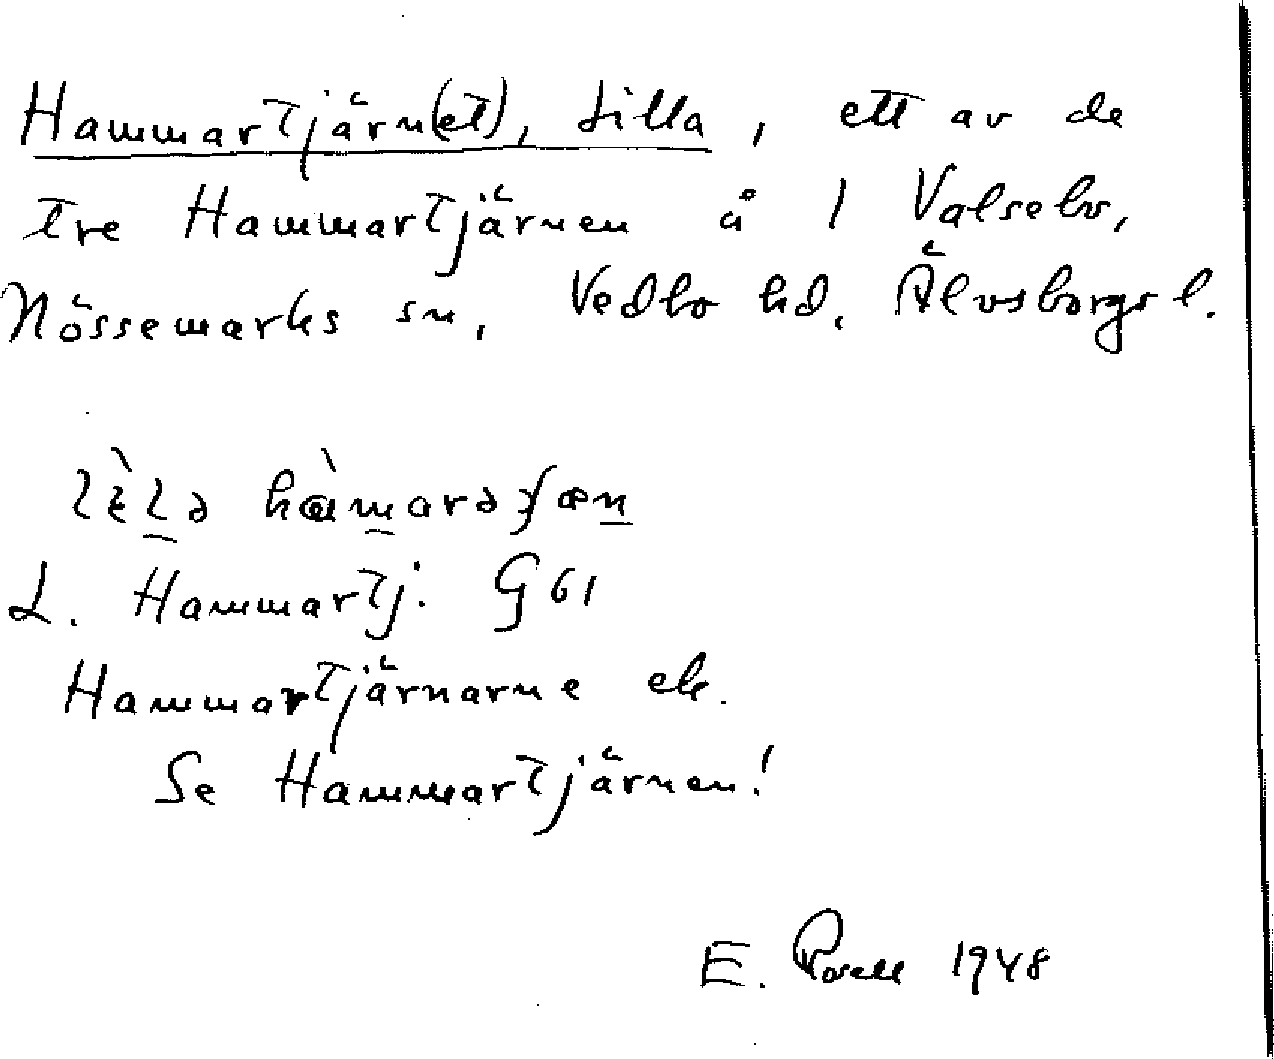 Hammartjärn(et), Lilla, ett av de
tre Hammartjärnen å 1 Valsebo,
Nössemarks sn, Vedbo hd. Älvsborgs l.
L. Hammartj. G 61
Hammartjärnarne ek.
Se Hammartjärnen!
E. Rosell 1948